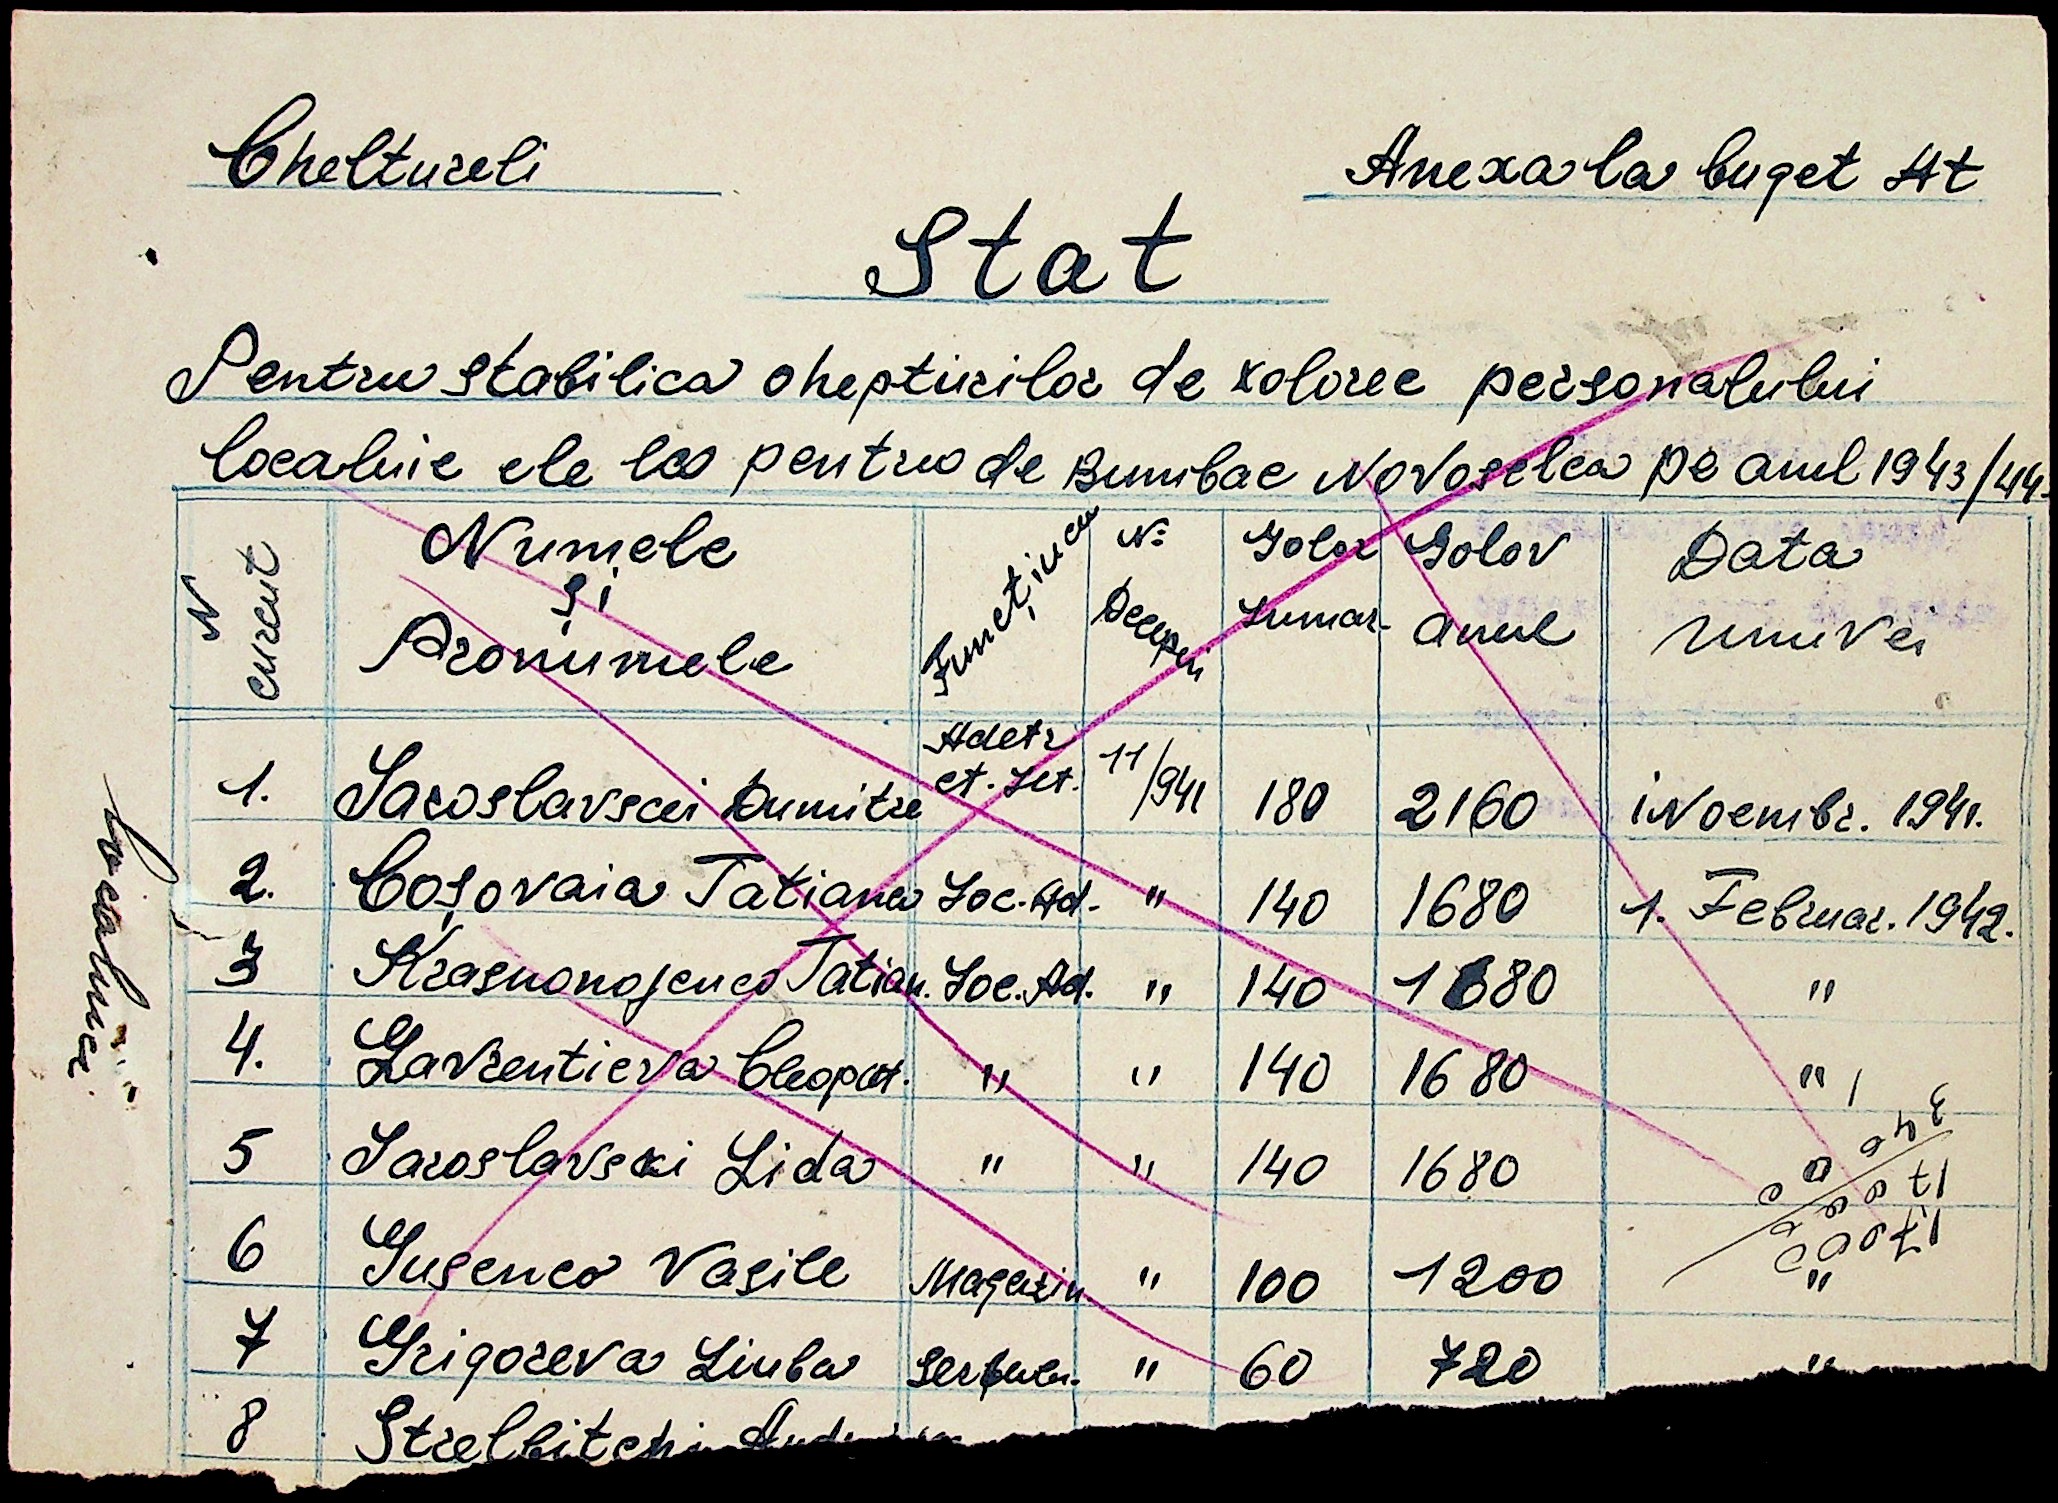 Cheltureli
Anexa la buget At
Stat
Pentru stabilica oheptirilor de xoloree personalului
localuie ele la pentru de Bumbac Novoselca pe anul 1943/44.
N curent Numele și Pronumele Funcțiuea № Decepu Golor Lunar- Golov anul Data numvei
1. Iaroslavscei Dumitre Adetr et. Set. 11/941 180 2160 1 Noembr. 1941.
2. Coșovaia Tatiana Loc. Ad. " 140 1680 1. Februar. 1942.
3 Krasnonojenco Tatian. Loc. Ad. " 140 1680 "
4. Lavrentieva Cleopat. " " 140 1680 "
5 Iaroslavscki Lida " " 140 1680
6 Gusenco Vasile Magazin. " 100 1200 "
7 Grigoreva Liuba Serbulu. " 60 720 "
8 Strelbitchi